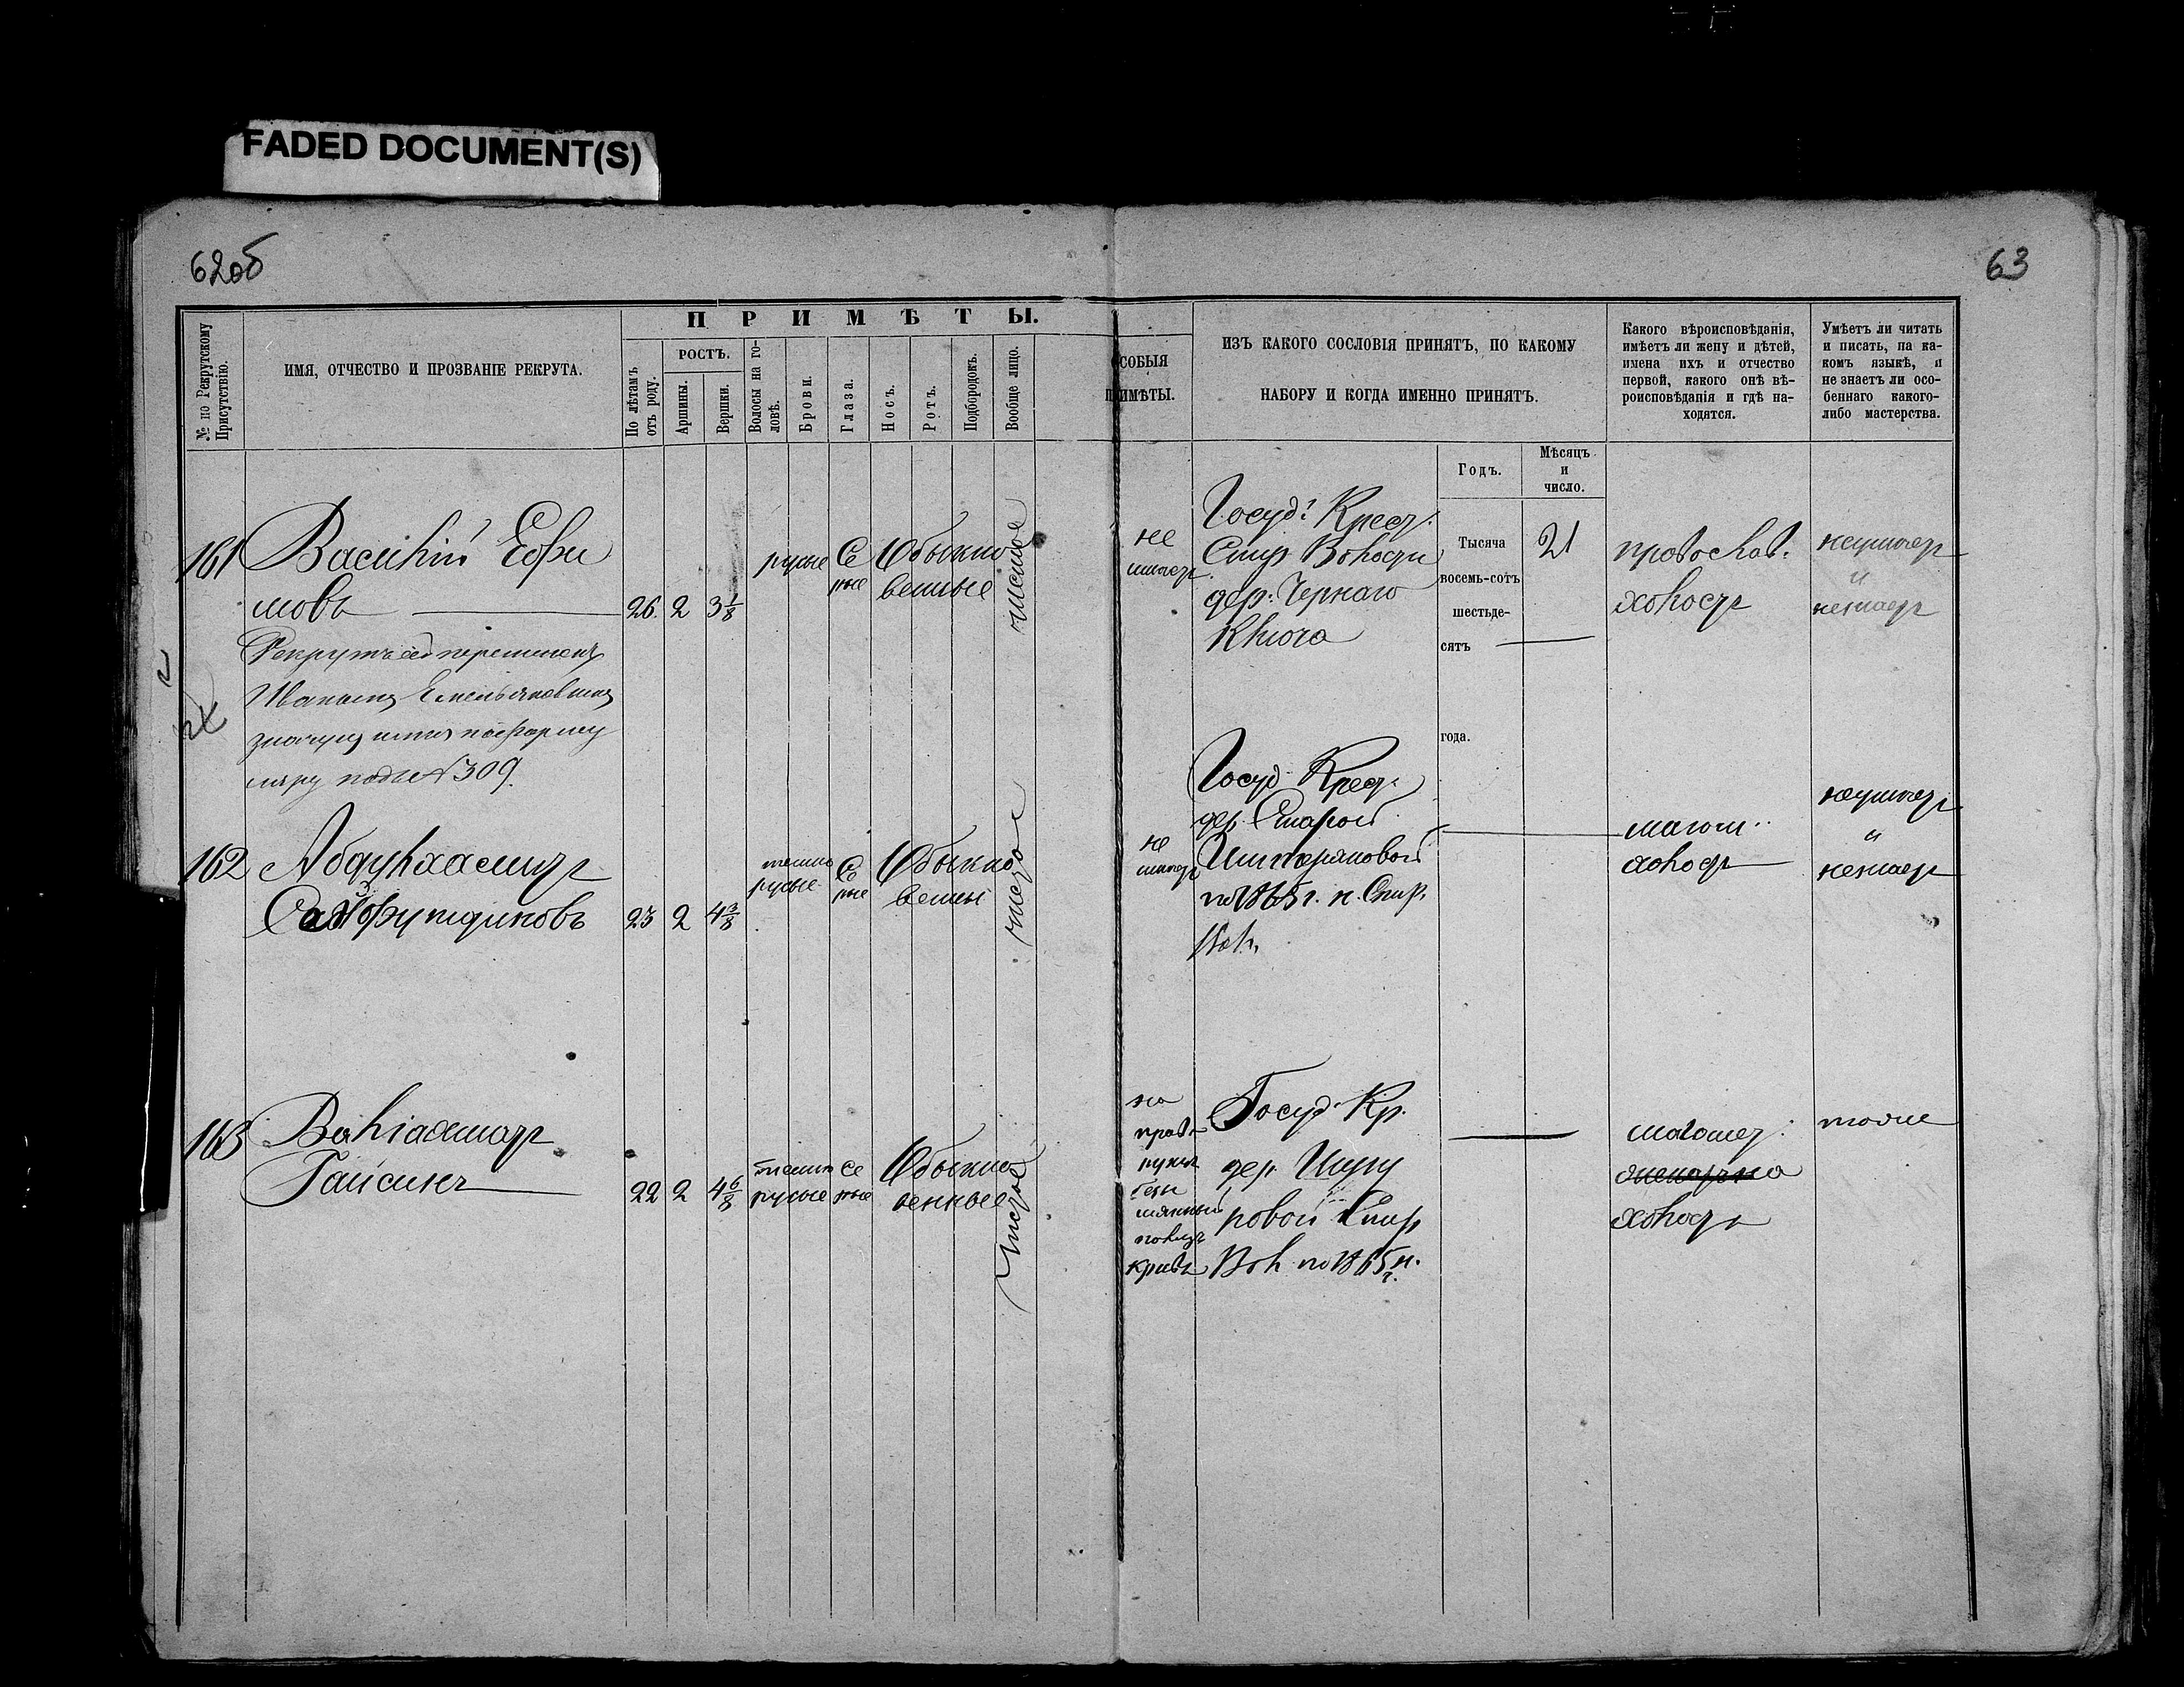 FADED DOCUMENT(S)
62об
63
№ по Рекрутскому Присутствію.
ИМЯ, ОТЧЕСТВО И ПРОЗВАНІЕ РЕКРУТА.
ПРИМѢТЫ.
По лѣтамъ отъ роду.
РОСТЪ.
Аршины.
Вершки.
Волосы на го-
ловѣ.
Брови.
Глаза.
Носъ.
Ротъ.
Подбородокъ.
Вообще лицо.
ОСОБЫЯ
ПРИМѢТЫ.
ИЗЪ КАКОГО СОСЛОВІЯ ПРИНЯТЪ, ПО КАКОМУ
НАБОРУ И КОГДА ИМЕННО ПРИНЯТЪ.
Годъ.
Мѣсяцъ
и
число.
Какого вѣроисповѣданія,
имѣетъ ли жену и дѣтей,
имена ихъ и отчество
первой, какого онѣ вѣ-
роисповѣданія и гдѣ на-
ходятся.
Умѣетъ ли читать
и писать, на ка-
комъ языкѣ, и
не знаетъ ли осо-
беннаго какого-
либо мастерства.
161
Василій Ефи
мовъ
Рекрутъ сей перемененъ
Иваномъ Емельяновымъ
поформу
ляру подъ № 309.
26. 2 3 1/8
русые
Се
рые
Обыкно
венные
чистое
не
имеетъ
Госуд. Крест.
Волости
дер: Чернаго
Ключа
Тысяча
восемь-сотъ
шестьде-
сятъ
года.
21
православ.
холостъ
неумѣетъ
и
незнаетъ
162
23 2 4 3/8
темно
русые
Се
рые
Обыкно
венны
чистое
не
имеетъ
Госуд. Крест.
дер. Старой
по 1865 г. н.
Вол.
магом.
холостъ
неумѣетъ
и
незнаетъ
163
Валіахматъ
Гайсинъ
22 2 4 6/8
темно
русые
се
рые
Обыкно
венные
Чистое
на
прав.
руке
безы
мянный
палецъ
кривъ
Госуд. Кр.
дер.
ровой
Вол по 1865 г. н.
магомет.
холостъ
тоже